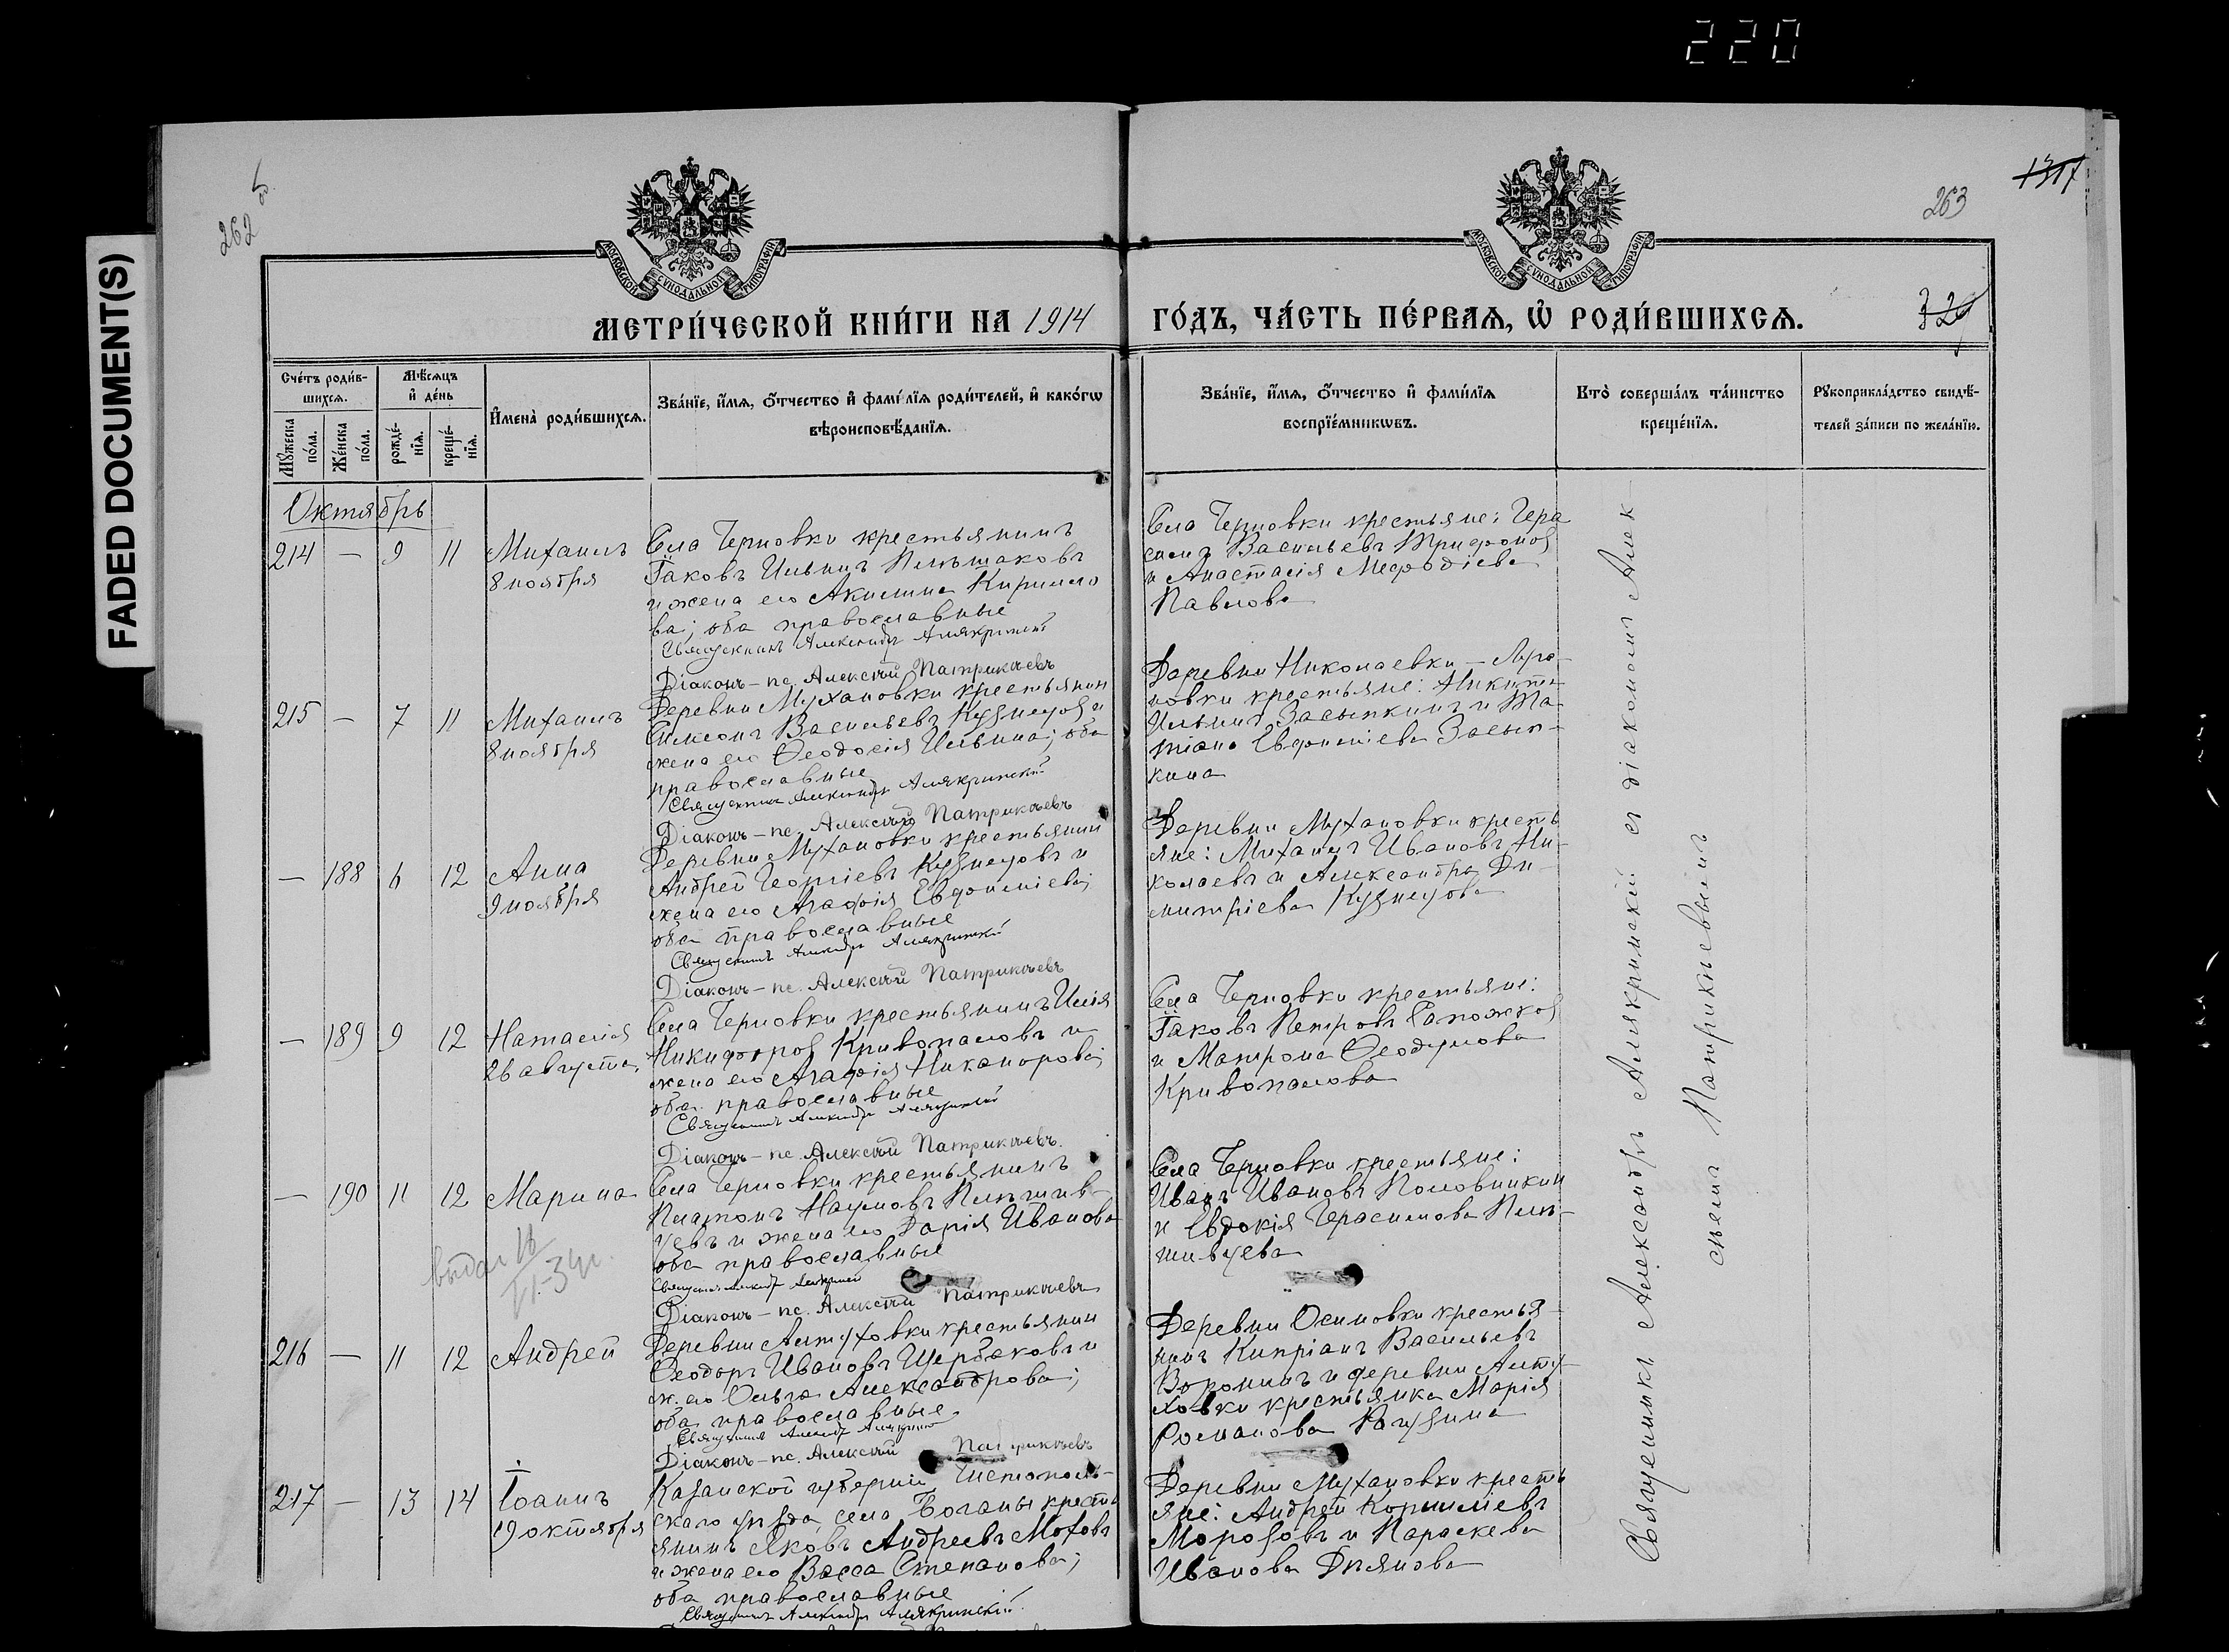 220
FADED DOCUMENT(S)
262 об
263
1317
МОСКОВСКОЙ СѴНОДАЛЬНОЙ ТИПОГРАФІИ
МОСКОВСКОЙ СѴНОДАЛЬНОЙ ТИПОГРАФІИ
МЕТРИ́ЧЕСКОЙ КНИ́ГИ НА 1914
ГО́ДЪ, ЧА́СТЬ ПЕ́РВАѦ, Ѡ҆ РОДИ́ВШИХСѦ.
Сче́тъ роди́в-
шихсѧ.
Мꙋ́жеска по́ла.
Же́нска по́ла.
Мѣ́сѧцъ
и҆ де́нь
рожде́-
нїѧ.
креще́-
нїѧ.
И҆мена̀ роди́вшихсѧ.
Зва́нїе, и҆́мѧ, ѻ҆́тчество и҆ фамѝлїѧ роди́телей, и҆ како́гѡ
вѣроисповѣ́данїѧ.
Зва́нїе, и҆́мѧ, ѻ҆́тчество и҆ фами́лїѧ
воспрїе́мникѡвъ.
Кто̀ соверша́лъ та́инство
креще́нїѧ.
Рꙋкоприкла́дство свидѣ́-
телей за́писи по жела́нїю.
Октябрь
214 — 9 11 Михаилъ
8 ноября
Села Черновки крестьянинъ
Іаковъ Ильинъ Пильшаковъ
и жена его Акилина Кирилло
ва; оба православные
Священникъ Александръ Алякринскій
Діаконъ – пс. Алексѣй Патрикѣевъ
Села Черновки крестьяне: Гера
симъ Васильевъ Трифонов
и Анастасія Меѳодіева
Павлова
215 — 7 11 Михаилъ
8 ноября
Деревни Мухановки крестьянин
Симеонъ Васильевъ Кузнецов и
жена его Ѳеодосія Ильина; оба
православные
Священникъ Александръ Алякринскій
Діаконъ – пс. Алексѣй Патрикѣевъ
Деревни Николаевки –
новки крестьяне: Никита
Ильинъ Засыпкинъ и Та
тіана Евфиміева Засып-
кина
— 188 6 12 Анна
9 ноября
Деревни Мухановки крестьянин
Андрей Георгіевъ Кузнецовъ и
жена его Агаѳія Евфиміева;
оба православные
Священникъ Александръ Алякринскій
Діаконъ – пс. Алексѣй Патрикѣевъ
Деревни Мухановки кресть
яне: Михаилъ Ивановъ Ни-
колаевъ и Александра Ди-
митріева Кузнецова
— 189 9 12 Наталія
26 августа
Села Черновки крестьянинъ Илія
Никифоров Кривопаловъ и
жена его Агаѳія Никанорова;
оба православные
Священникъ Александръ Алякринскій
Діаконъ – пс. Алексѣй Патрикѣевъ.
Села Черновки крестьяне:
Іаковъ Петровъ Сапожков
и Матрона Ѳеодулова
Кривопалова
— 190 11 12 Марина
выдан
Села Черновки крестьянинъ
Платонъ Наумовъ Пильшив-
цевъ и жена его Дарія Иванова
оба православные
Священникъ Александръ Алякринскій
Діаконъ – пс. Алексѣй Патрикѣевъ
Села Черновки крестьяне:
Иванъ Ивановъ Половинкин
и Евдокія Герасимова Пиль-
шивцева
216 — 11 12 Андрей
Деревни Алтуховки крестьянин
Ѳеодоръ Ивановъ Щербаковъ и
ж. его Ольга Александрова;
оба православные
Священникъ Александръ Алякринскій
Діаконъ – пс. Алексѣй Патрикѣевъ
Деревни Осиновки крестья-
нинъ Кипріанъ Васильевъ
Воронинъ и деревни Алту-
ховки крестьянка Марія
Романова
217 — 13 14 Іоаннъ
19 октября
Казанской губерніи Чистополь-
скаго уѣзда, села Боганы кресть
янинъ Яковъ Андреевъ Моховъ
и жена его Васса Степанова;
оба православные
Священникъ Александръ Алякринскій
Деревни Мухановки кресть
яне: Андрей Корниліевъ
Морозовъ и Параскева
Иванова
Священникъ Александръ Алякринскій съ діакономъ Алек
сѣемъ Патрикѣевымъ